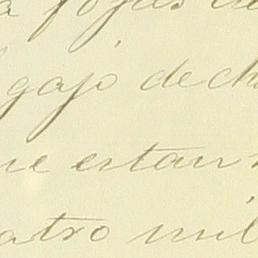 a fojas de
gajo de ch
ue estan
atro mil